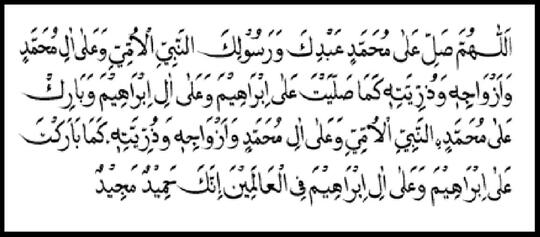 اَللّٰهُمَّ صَلِّ عَلٰى مُحَمَّدٍ عَبْدِكَ وَرَسُوْلِكَ النَّبِيِّ الْاُمِّيِّ وَعَلٰى اٰلِ مُحَمَّدٍ
وَاَزْوَاجِهٖ وَذُرِّيَّتِهٖ كَمَا صَلَّيْتَ عَلٰى اِبْرَاهِيْمَ وَعَلٰى اٰلِ اِبْرَاهِيْمَ وَبَارِكْ
عَلٰى مُحَمَّدٍ ۨالنَّبِيِّ الْاُمِّيِّ وَعَلٰى اٰلِ مُحَمَّدٍ وَاَزْوَاجِهٖ وَذُرِّيَّتِهٖ. كَمَا بَارَكْتَ
عَلٰى اِبْرَاهِيْمَ وَعَلٰى اٰلِ اِبْرَاهِيْمَ فِى الْعَالَمِيْنَ اِنَّكَ حَمِيْدٌ مَجِيْدٌ